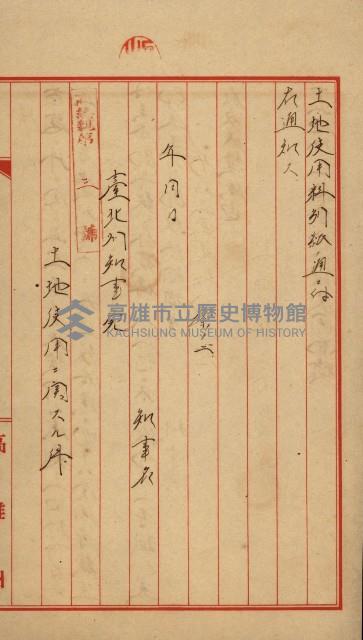 土地使用料別紙通リ
右通知ス
年月日
知事名
臺北州知事宛
三
土地使用ニ関スル件
高雄州
高雄市立歷史博物館
KAOHSIUNG MUSEUM OF HISTORY